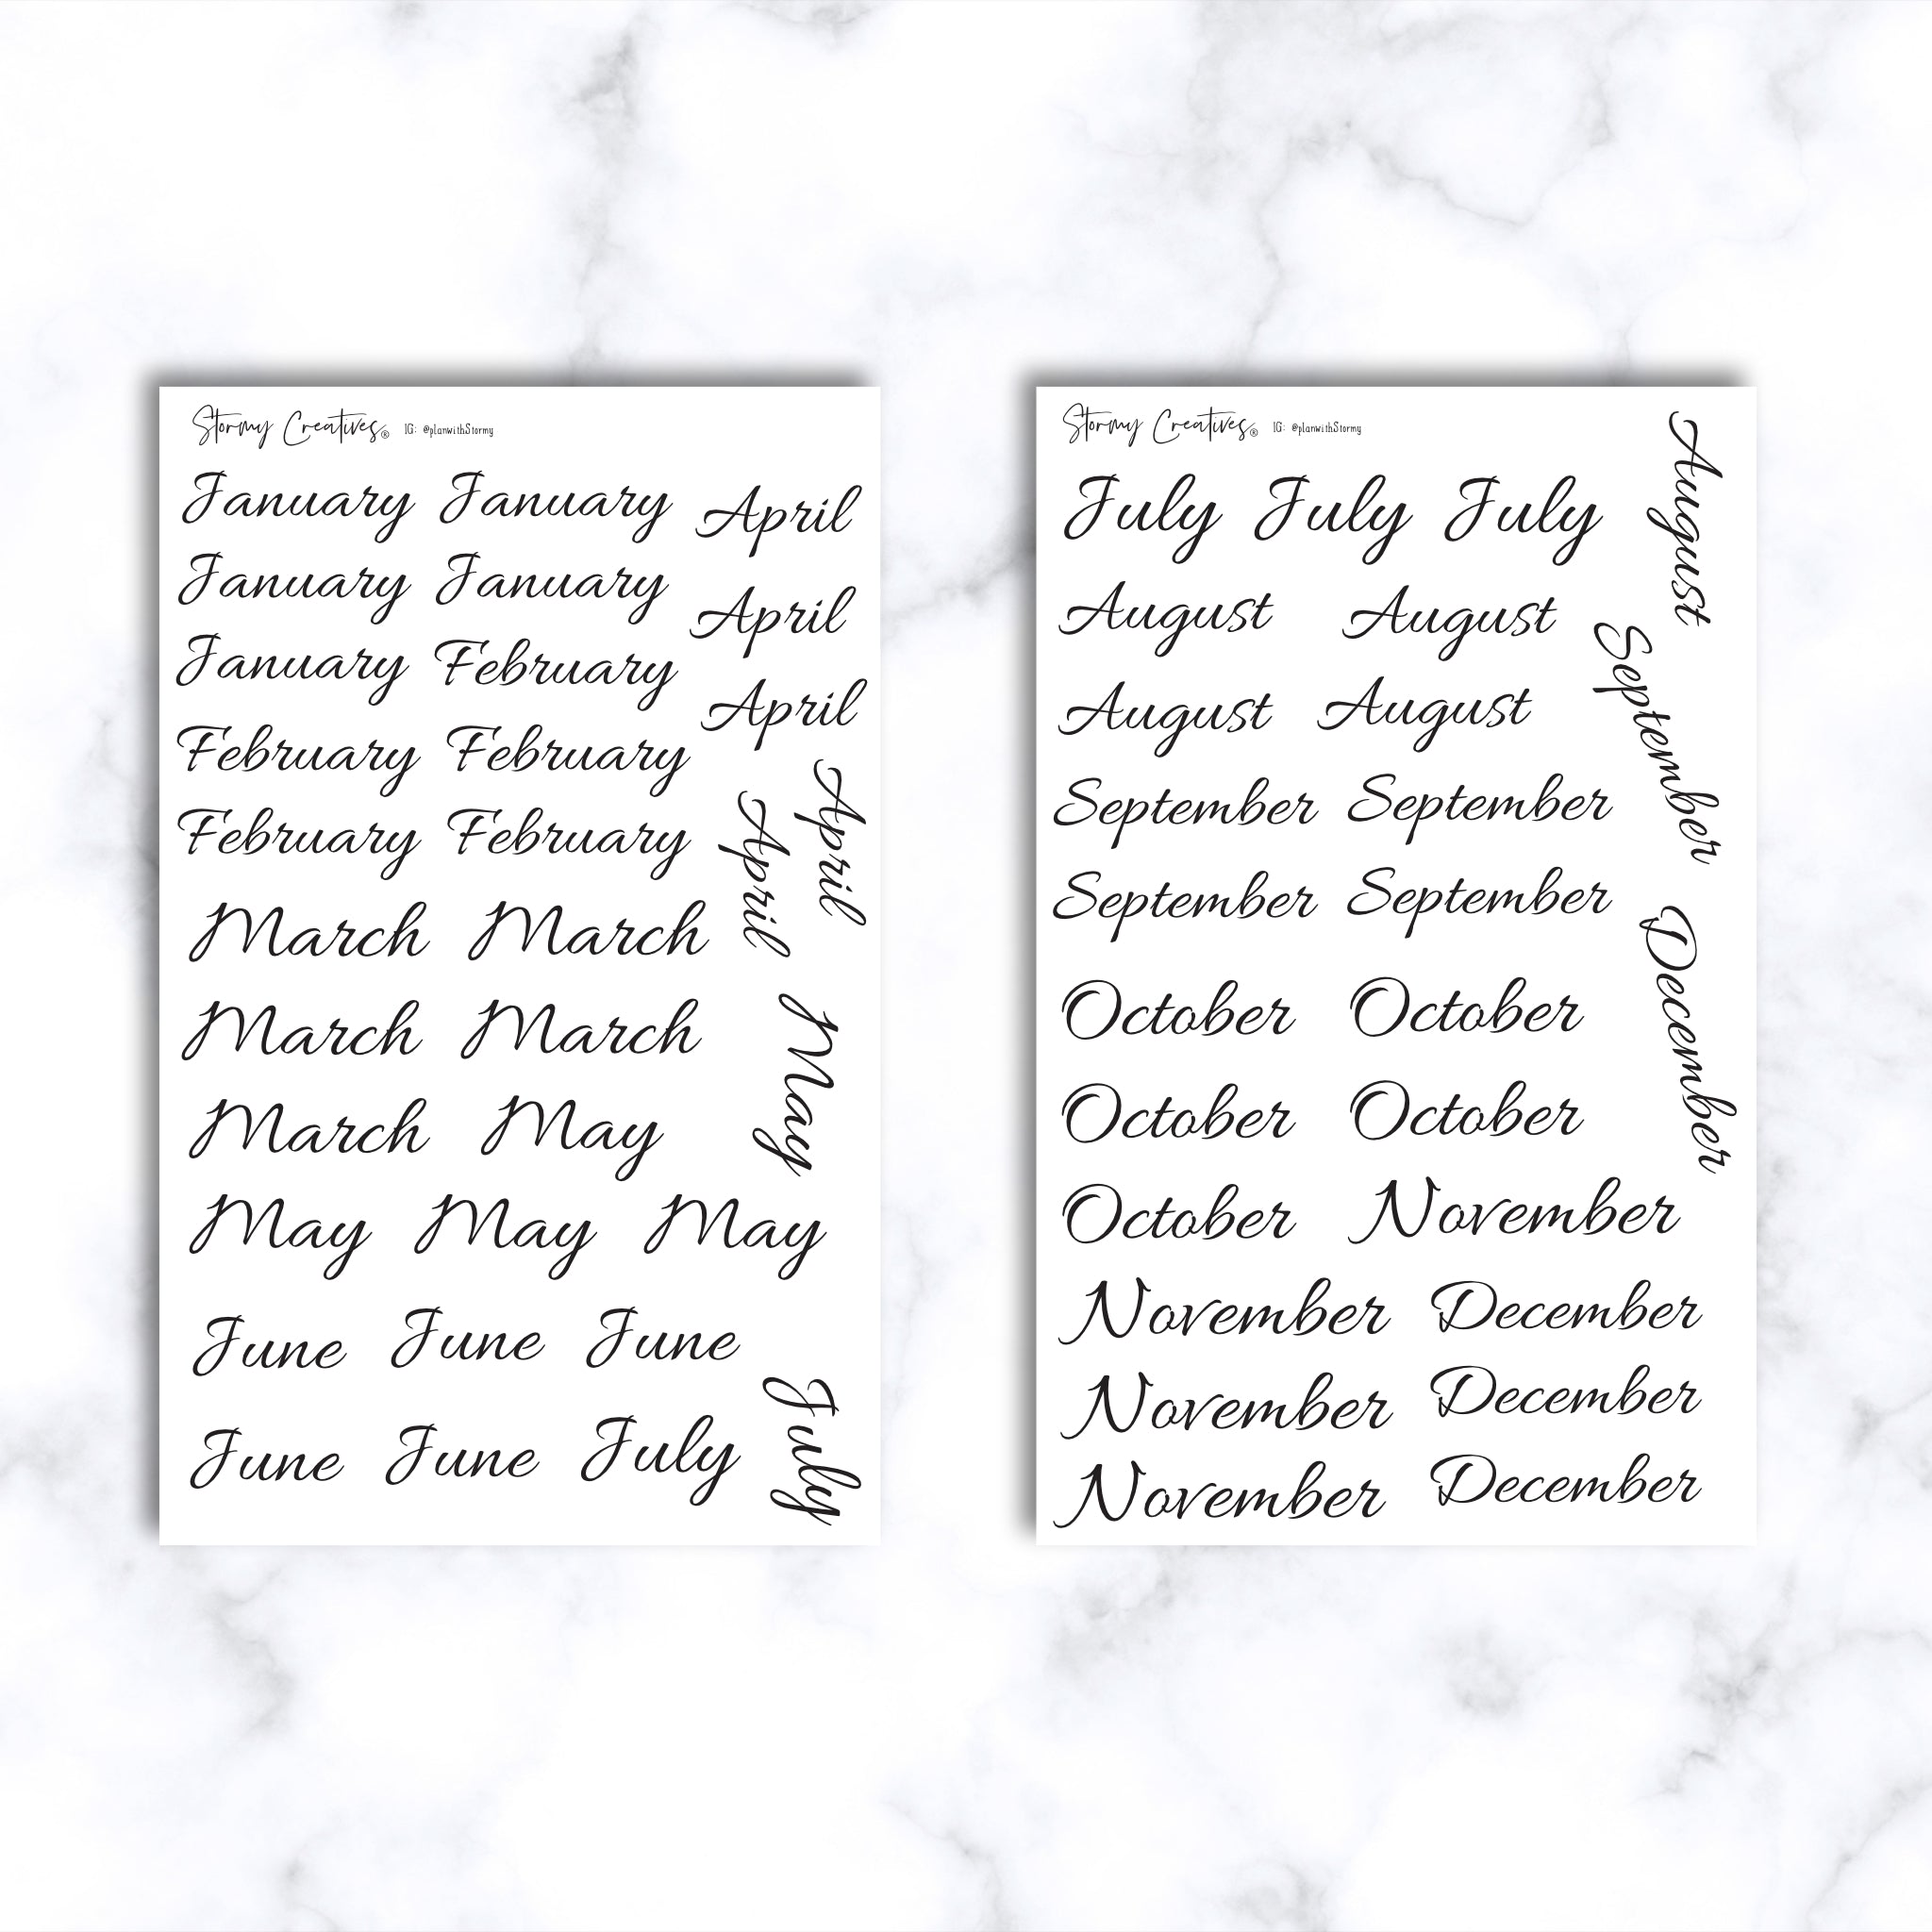 Stormy Creatives® IG: @planwithStormy
January January April
January January April
January February April
February February April
February February April
March March
March March May
March May
May May May
June June June
June June July July
Stormy Creatives® IG: @planwithStormy
July July July August
August August
August August September
September September
September September
October October December
October October
October November
November December
November December
November December